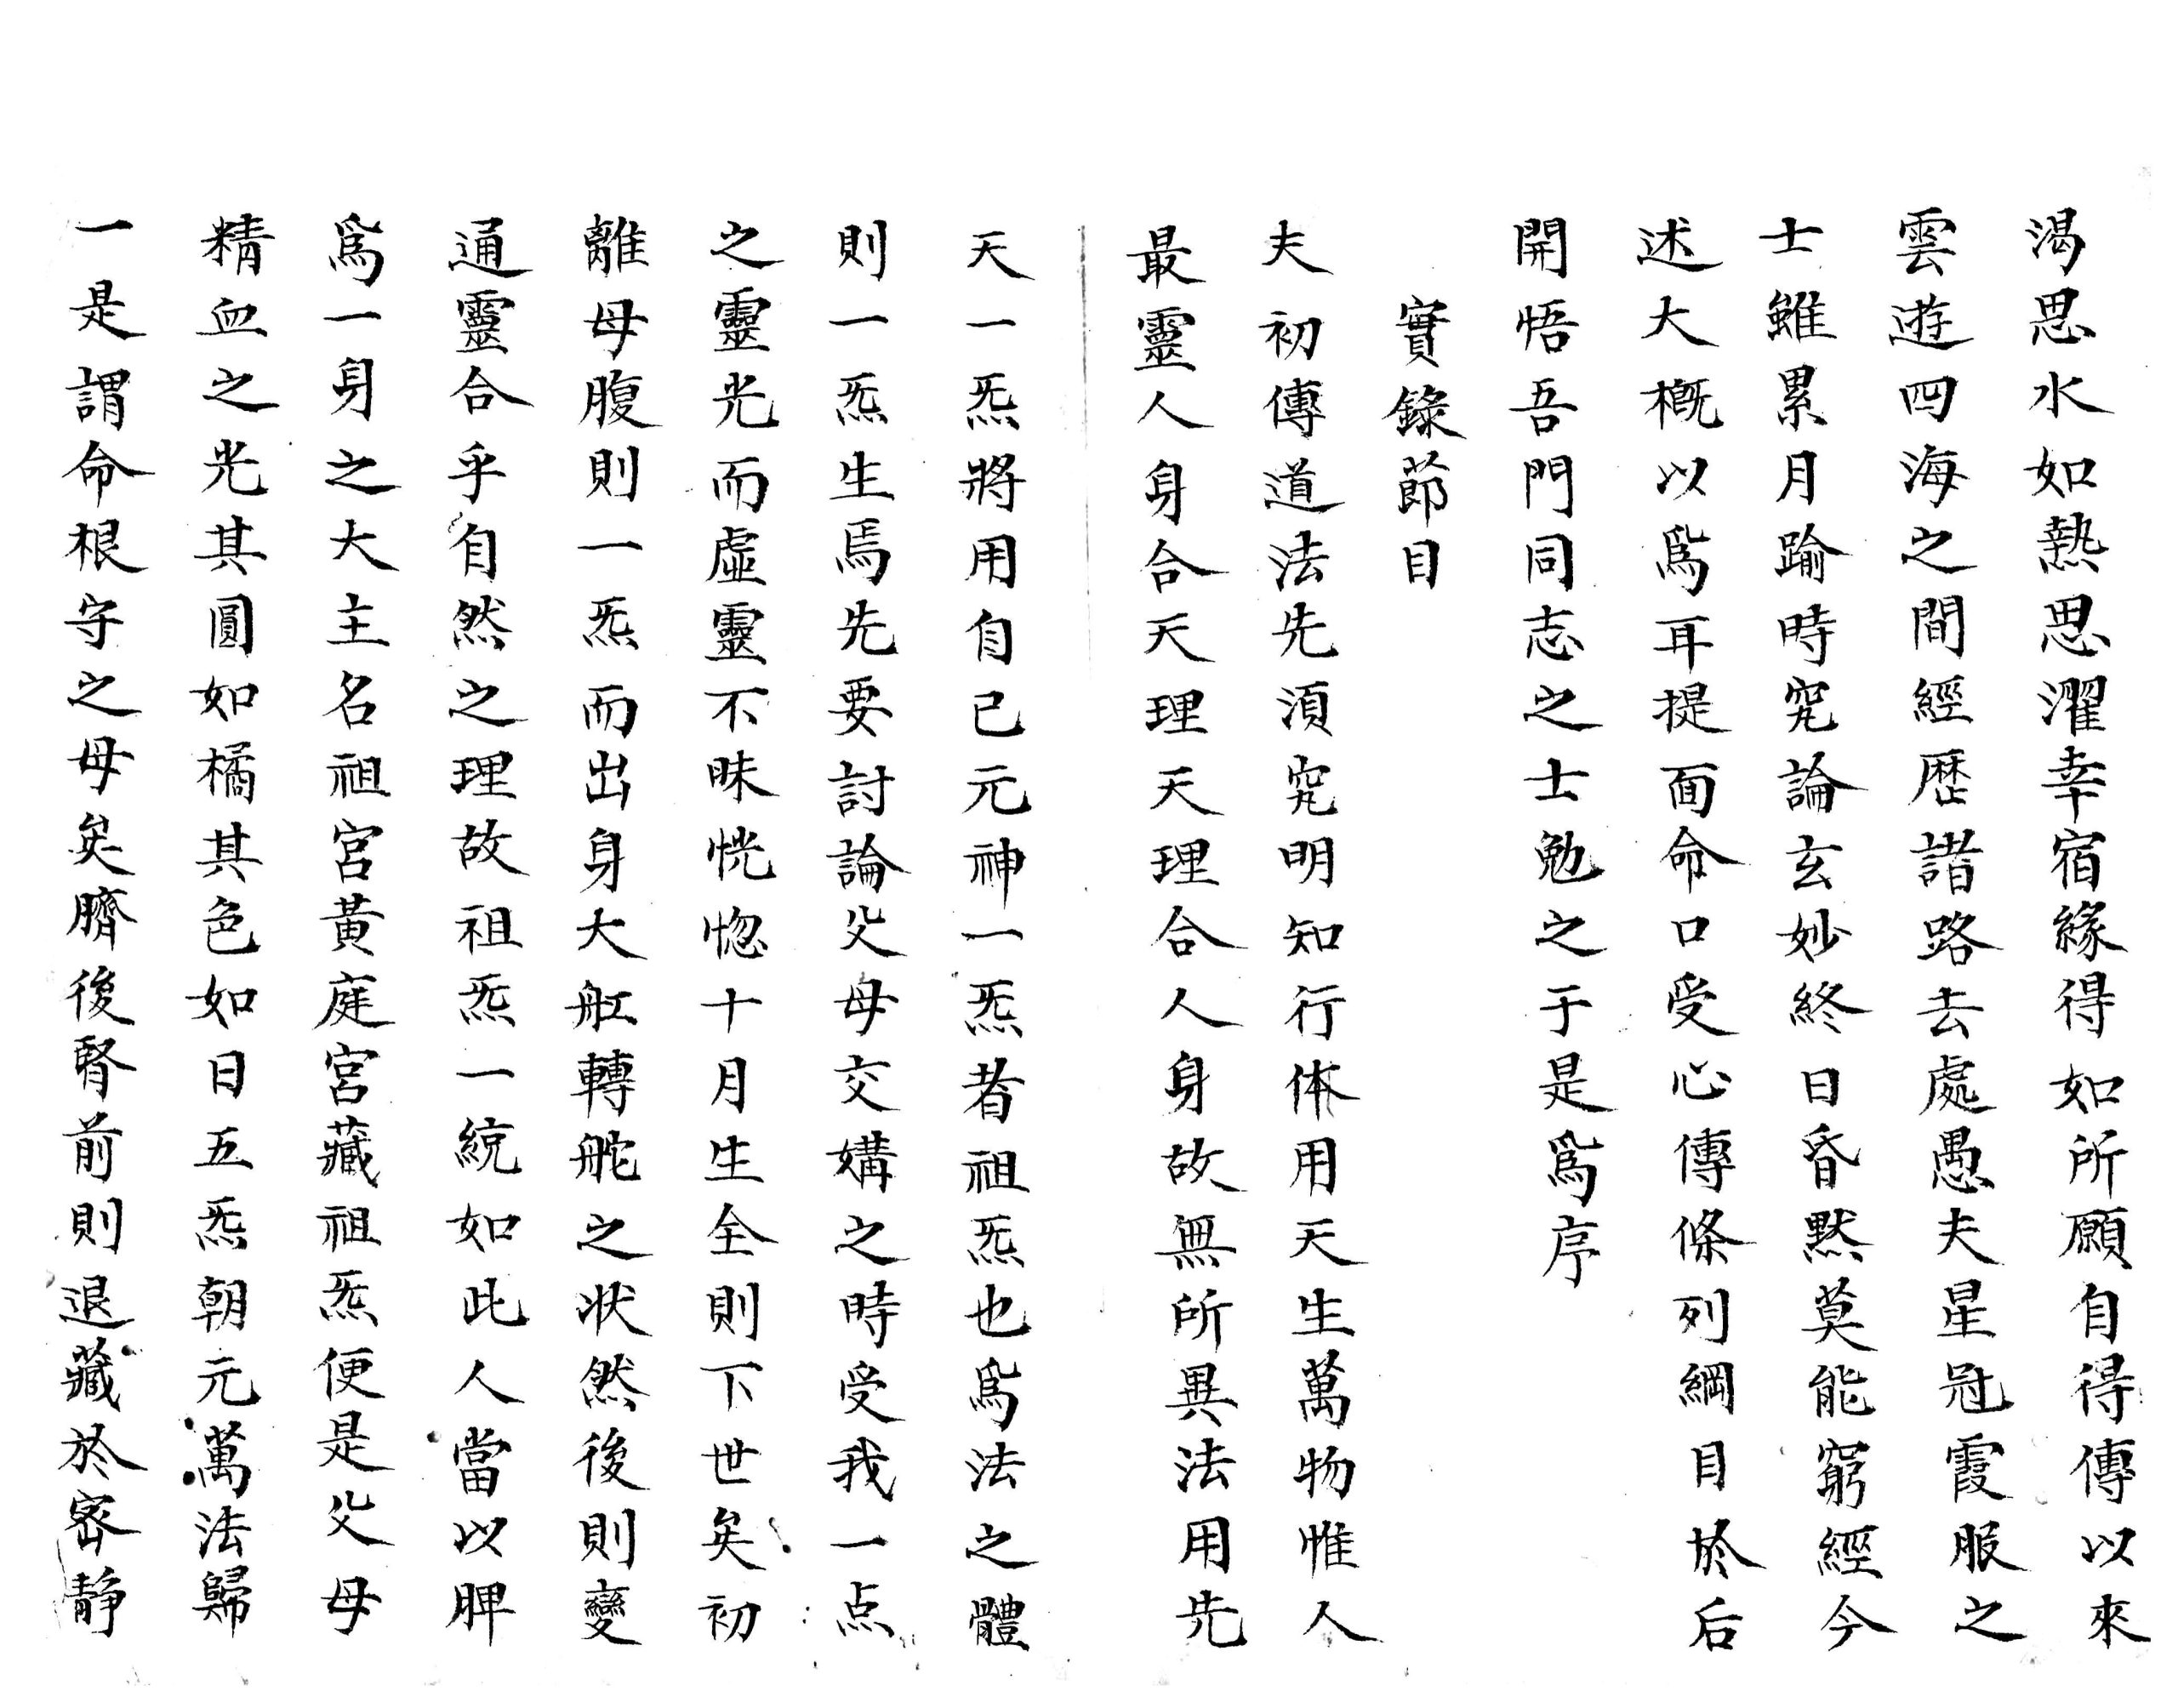 渴思水如熱思濯幸宿緣得如所願自得傳以來
雲遊四海之間經歷諸路去處愚夫星冠霞服之
士雖累月踰時究論玄妙終日昏默莫能窮經今
述大概以爲耳提面命口受心傳條列綱目於后
開悟吾門同志之士勉之于是爲序
實錄節目
夫初傳道法先須究明知行体用天生萬物惟人
最靈人身合天理天理合人身故無所異法用先
天一炁將用自己元神一炁者祖炁也爲法之體
則一炁生焉先要討論父母交媾之時受我一点
之靈光而虛靈不昧恍惚十月生全則下世矣初
離母腹則一炁而出身大舡轉舵之状然後則變
通靈合乎自然之理故祖炁一統如此人當以脾
爲一身之大主名祖宮黃庭宮藏祖炁便是父母
精血之光其圓如橘其色如日五炁朝元萬法歸
一是謂命根守之母矣臍後腎前則退藏於密静